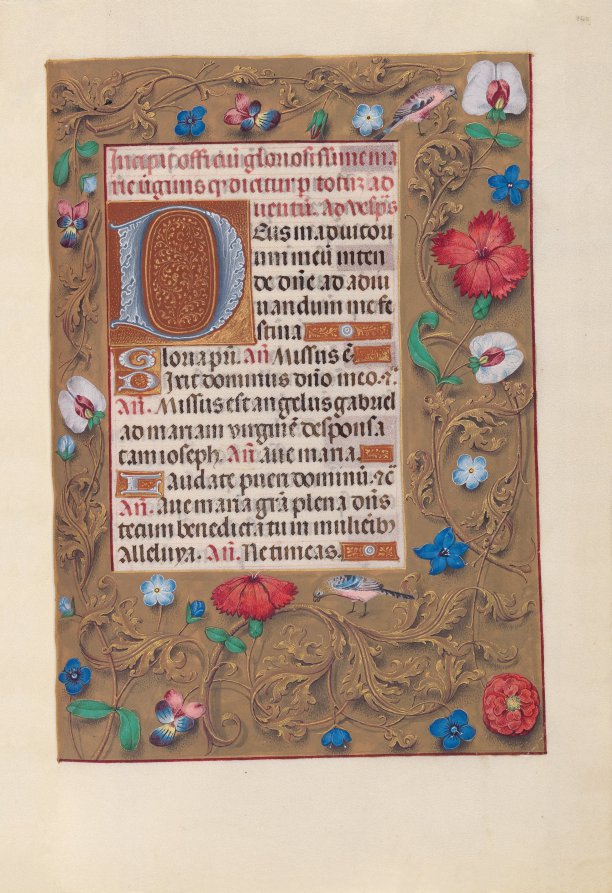 Incipit officiū gloriosissime ma
rie ūginis qd dicitur p totuz ad
uentū. Ad vesp̄s
Deus in adiutori
um meū inten
de dn̄e ad adiu
uandum me fe
stina
Gloria pr̄i. An̄. Missus ē
Dixit dominus dn̄o meo. ⁊c̄
An̄. Missus est angelus gabriel
ad mariam virginē desponsa
tam ioseph. An̄. aue maria.
Laudate pueri dominū. ⁊c̄
An̄. aue maria grā plena dn̄s
tecum benedicta tu in mulieribꝫ
Alleluya. An̄. Ne timeas.